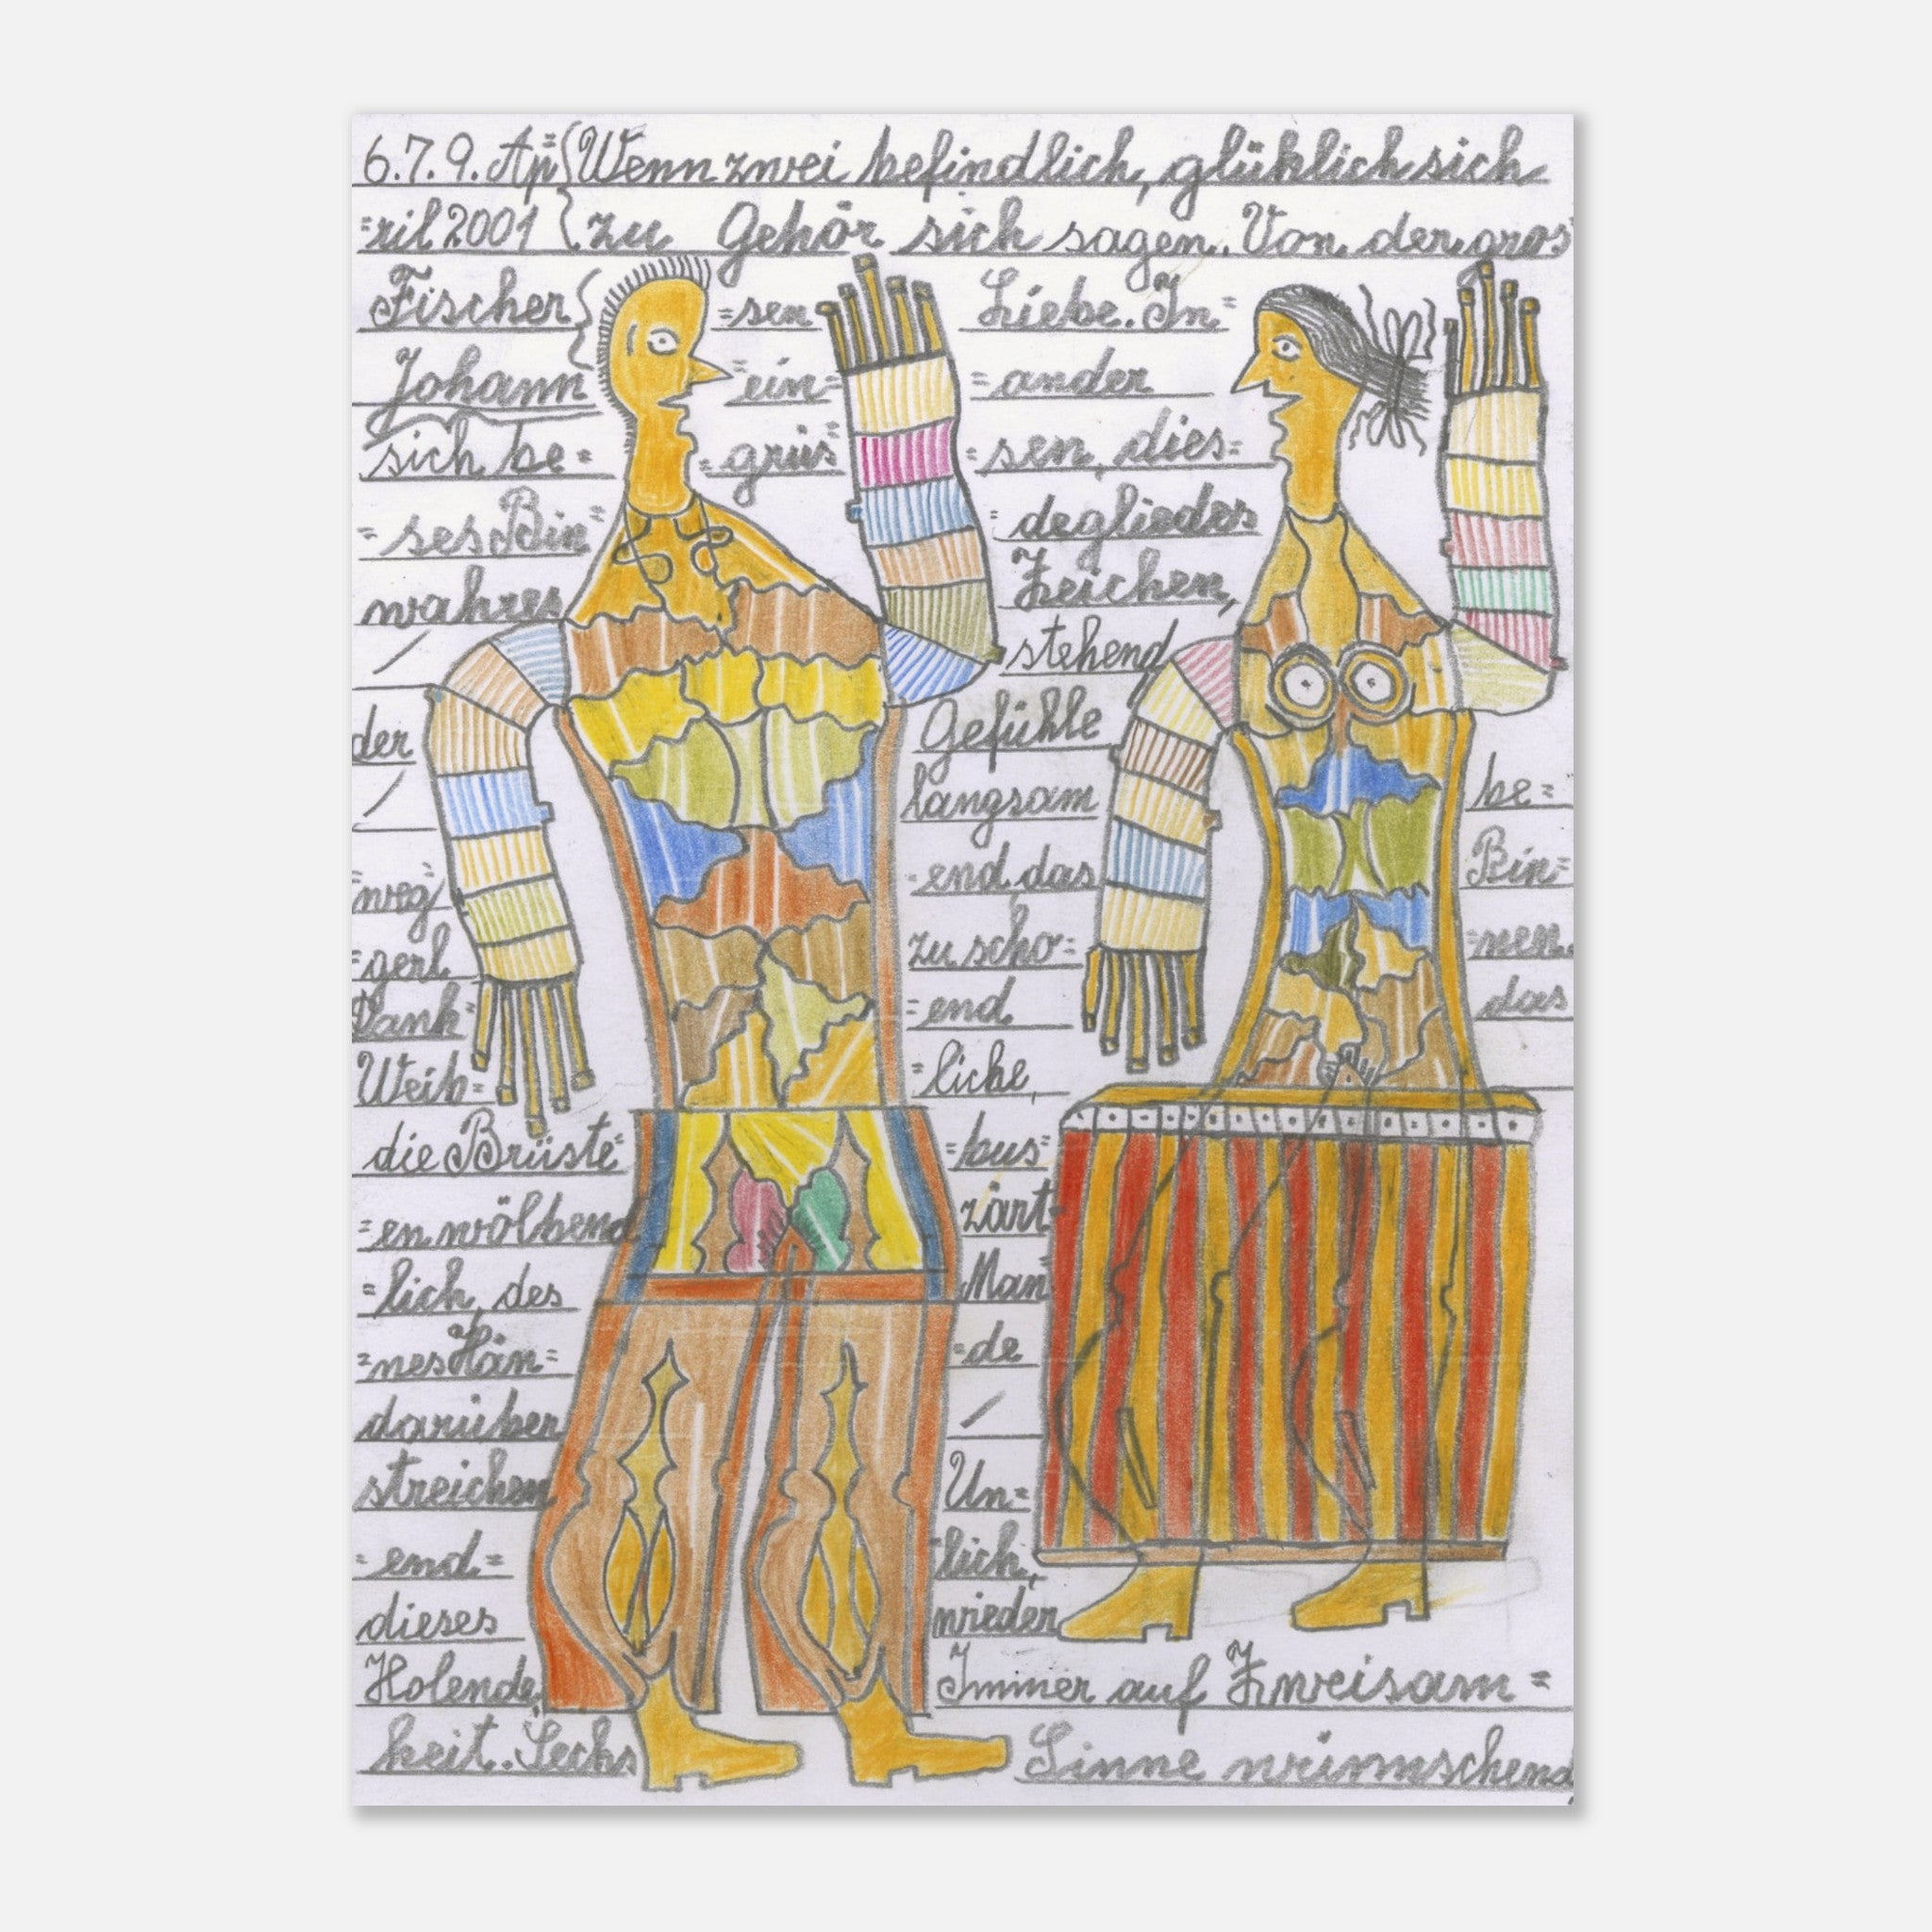 6.7.9. Ap= {Wenn zwei befindlich, glüklich sich
=ril 2001 }zu Gehör sich sagen. Von der gros
Fischer { =sen Liebe. In=
Johann =ein= =ander
sich be= =grüs= =sen, dies=
=ses Bin= =degliedes
wahres Zeichen,
/ stehend
der Gefühle
/ langsam be=
=weg= =end das Bin=
=gerl zu scho= =nen.
Dank= =end das
Weib= =liche,
die Brüste= =bus=
=en wölbend zärt=
=lich, des Man=
=nes Hän= =de
darüber /
streichen Un=
=end= lich,
dieses wieder
Holende, Immer auf Zweisam=
keit. Sechs Sinne